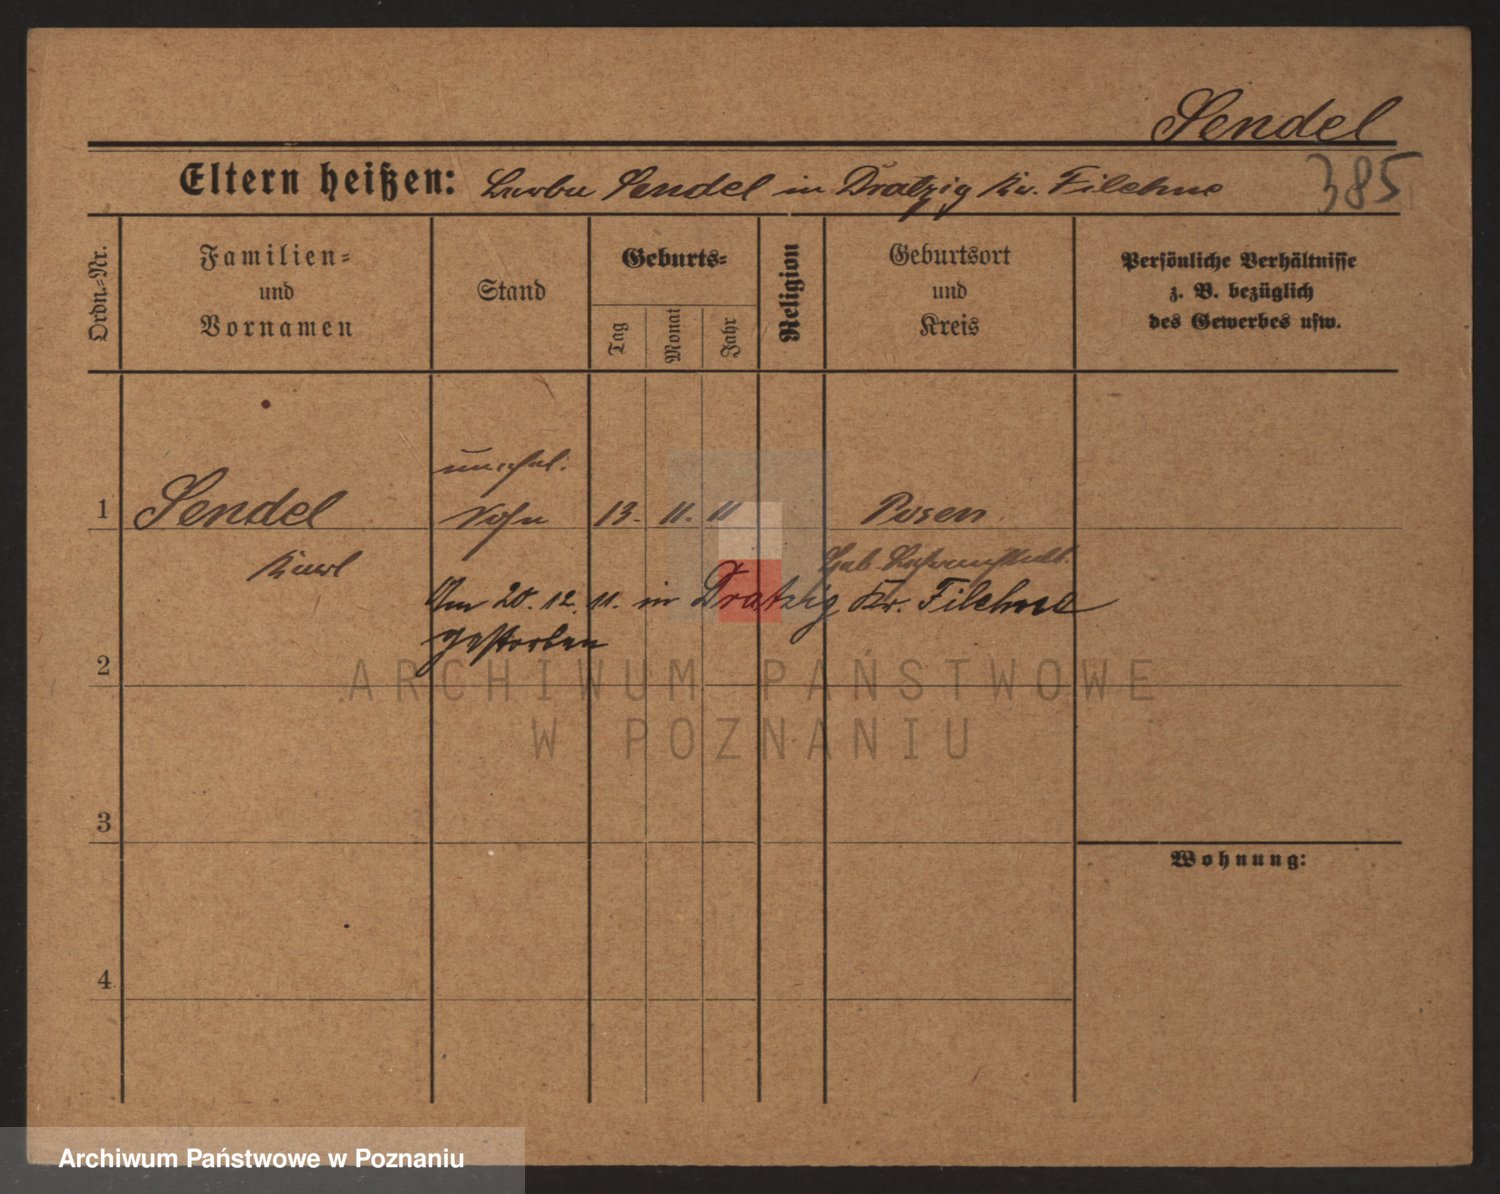 Sendel
385
Eltern heißen: Barba Sendel in Dratzig Kr. Filehne
Ordn.-Nr.
Familien-
und
Vornamen
Stand
Geburts-
Tag
Monat
Jahr
Religion
Geburtsort
und
Kreis
Persönliche Verhältnisse
z. B. bezüglich
des Gewerbes usw.
unehel.
1 Sendel Sohn 13. 11. 11 Posen
Karl Heb. Lehranstalt.
Am 20. 12. 11. in Dratzig Kr. Filehne
gestorben
2
ARCHIWUM PAŃSTWOWE
W POZNANIU
3
Wohnung:
4
Archiwum Państwowe w Poznaniu